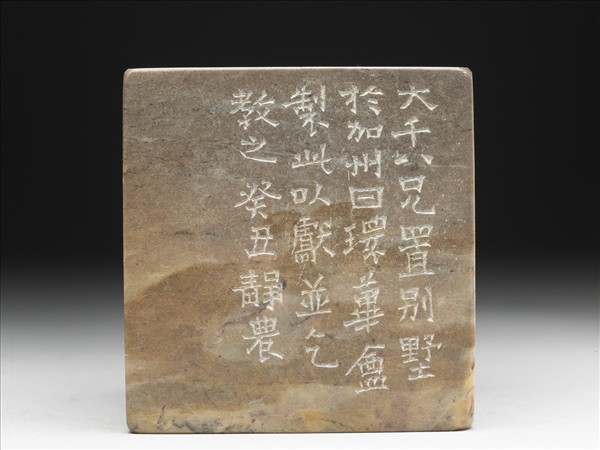 大千八兄置别墅
於加州曰環蓽盦
製此以獻並乞
教之癸丑靜農